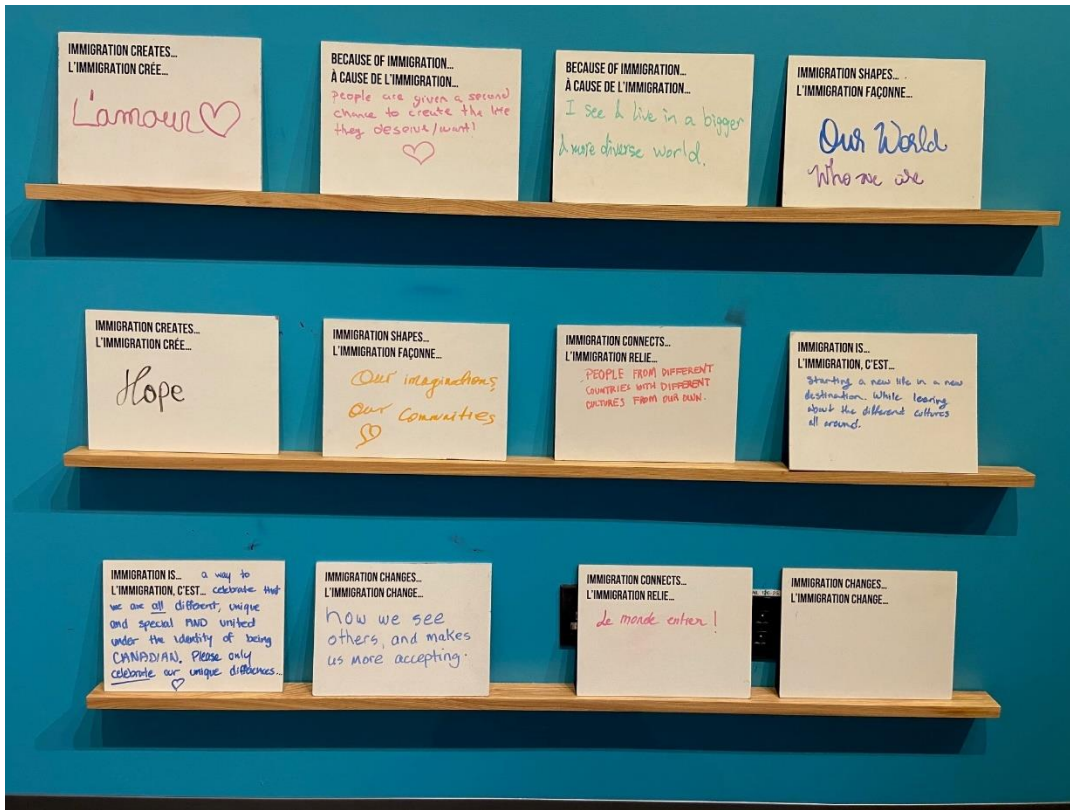 IMMIGRATION CREATES...
L'IMMIGRATION CRÉE...
L'amour
BECAUSE OF IMMIGRATION...
À CAUSE DE L'IMMIGRATION...
People are given a second
chance to create the life
they deserve/want!
BECAUSE OF IMMIGRATION...
À CAUSE DE L'IMMIGRATION...
I see & live in a bigger
& more diverse world.
IMMIGRATION SHAPES...
L'IMMIGRATION FAÇONNE...
Our World
Who we are
IMMIGRATION CREATES...
L'IMMIGRATION CRÉE...
Hope
IMMIGRATION SHAPES...
L'IMMIGRATION FAÇONNE...
Our imaginations,
Our Communities
IMMIGRATION CONNECTS...
L'IMMIGRATION RELIE...
PEOPLE FROM DIFFERENT
COUNTRIES WITH DIFFERENT
CULTURES FROM OUR OWN.
IMMIGRATION IS...
L'IMMIGRATION, C'EST...
Starting a new life in a new
destination. While learing
about the different cultures
all around.
IMMIGRATION IS... a way to
L'IMMIGRATION, C'EST... celebrate that
we are all different, unique
and special AND united
under the identity of being
CANADIAN. Please only
celebrate our unique differences...
IMMIGRATION CHANGES...
L'IMMIGRATION CHANGE...
how we see
others, and makes
us more accepting.
IMMIGRATION CONNECTS...
L'IMMIGRATION RELIE...
Le monde entier !
IMMIGRATION CHANGES...
L'IMMIGRATION CHANGE...